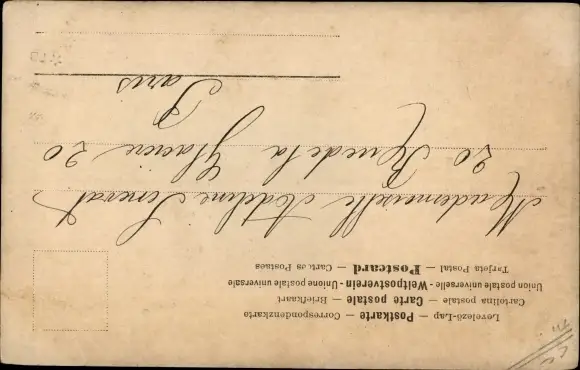 Levelező-Lap — Postkarte — Correspondenzkarte
Cartolina postale — Carte postale — Briefkaart
Union postale universelle - Weltpostverein - Unione postale universale
Tarjeta Postal — Postcard — Cart. os Postaes
Mademoiselle Adeline
20 Rue de la Glacière 20
Paris